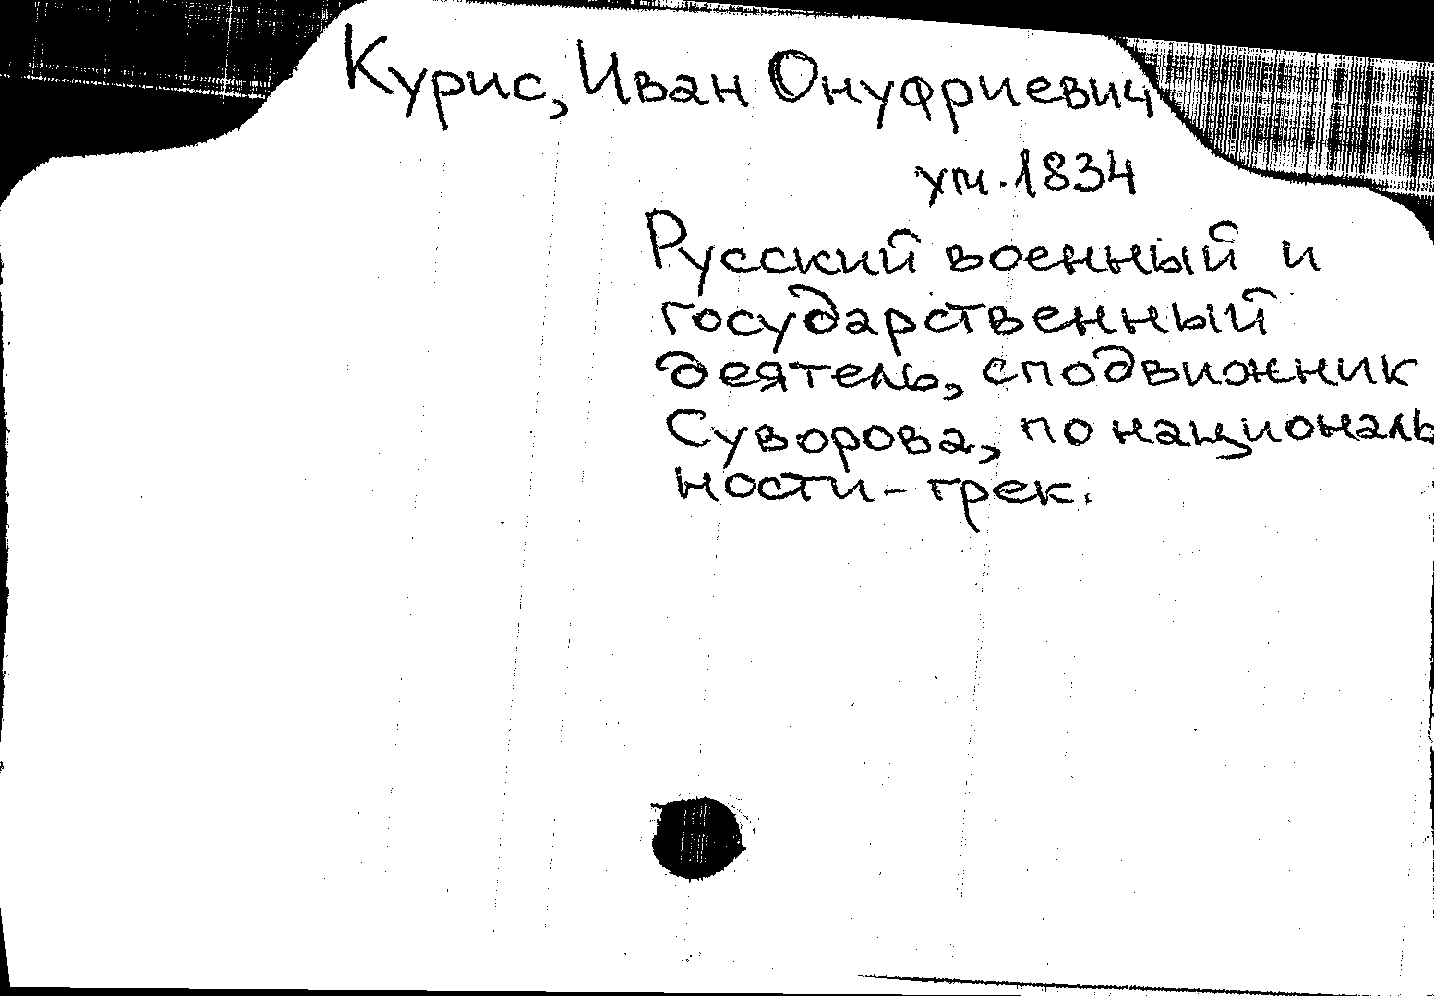 Курис, Иван Онуфриевич
ум. 1834
Русский военный и
государственный
деятель, сподвижник
Суворова, по националь
ности - грек.